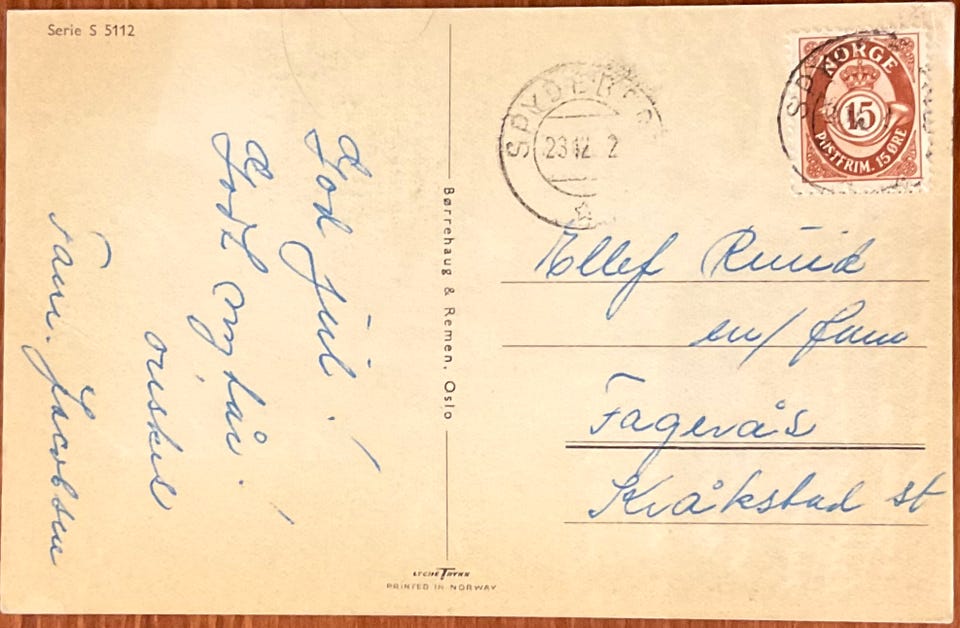 Serie S 5112
God jul!
Godt nyttår!
ønskes
Fam. Jacobsen
Børrehaug & Remen, Oslo
LYCHE TRYKK
PRINTED IN NORWAY
SPYDEBERG
23 12 2
NORGE
15
POSTFRIM. 15 ØRE
Ellef Ruud
m/ fam
Fagerås
Kråkstad st